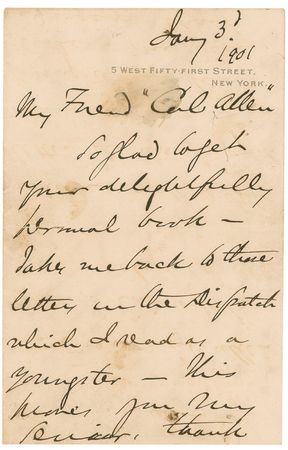 Jany 3d
1901
5 WEST FIFTY-FIRST STREET,
NEW YORK
My Friend "Col Allen"
So glad to get
your delightfully
personal book –
Takes me back to those
letters in the Dispatch
which I read as a
youngster – This
proves you my
senior, thank